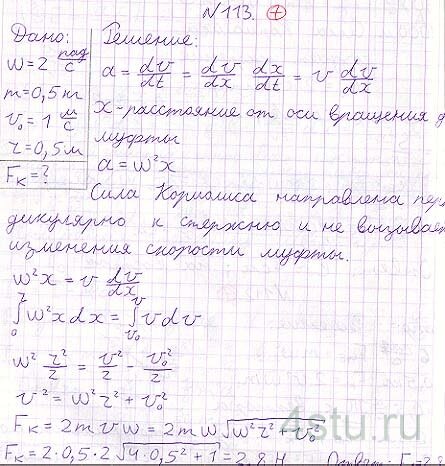 N113. +
Дано: Решение:
ω = 2 рад/с
m = 0,5 кг
v₀ = 1 м/с
r = 0,5 м
Fк = ?
a = dv/dt = dv/dx dx/dt = v dv/dx
x - расстояние от оси вращения
муфты
a = ω²x
Сила Кориолиса направлена пер
дикулярно к стержню и не вызывает
изменения скорости муфты.
ω²x = v dv/dx
∫₀ʳ ω²x dx = ∫ᵥ₀ᵛ v dv
ω² r²/2 = v²/2 - v₀²/2
v² = ω²r² + v₀²
Fк = 2mvω = 2mω√(ω²r² + v₀²)
Fк = 2·0,5·2√(4·0,5² + 1) = 2,8 Н Ответ: F = 2,8
4stu.ru